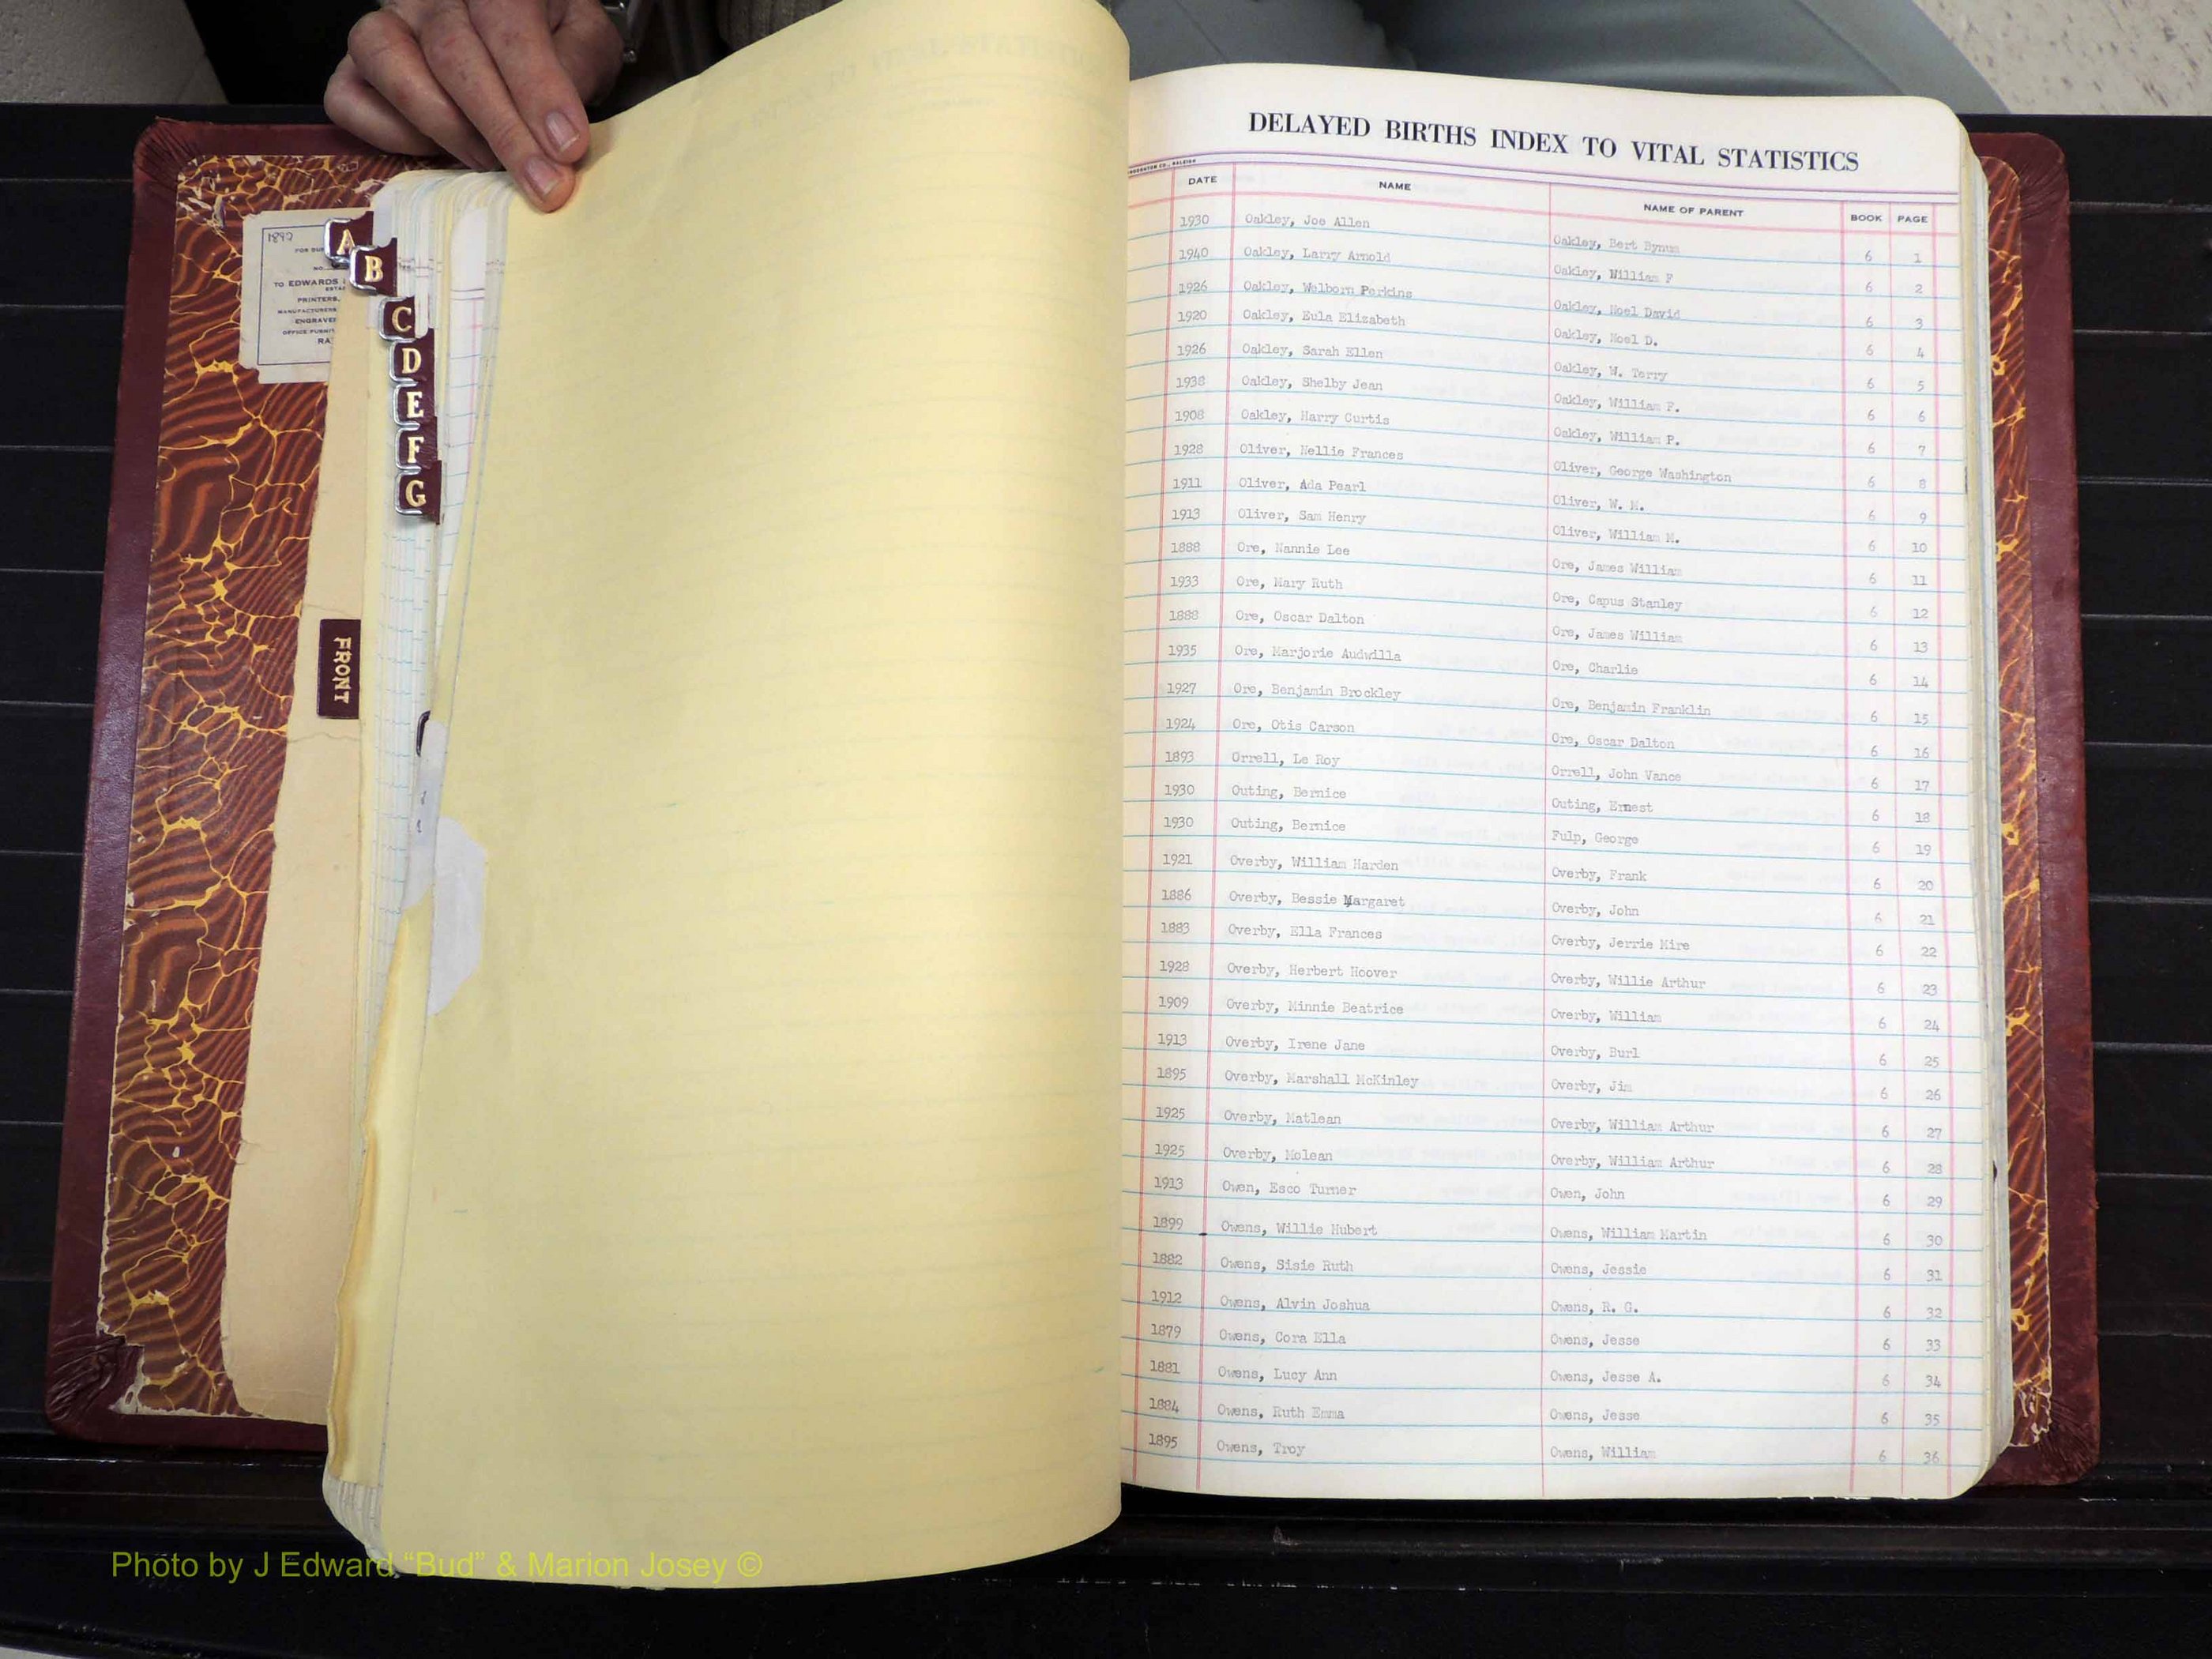 1892
FOR DU
NO.
TO EDWARDS
ESTA
PRINTERS,
MANUFACTURERS
ENGRAVE
OFFICE FURNIT
RA
A
B
C
D
E
F
G
FRONT
DELAYED BIRTHS INDEX TO VITAL STATISTICS
CO., RALEIGH
DATE NAME NAME OF PARENT BOOK PAGE
1930 Oakley, Joe Allen Oakley, Bert Bynum 6 1
1940 Oakley, Larry Arnold Oakley, William F 6 2
1926 Oakley, Welborn Perkins Oakley, Noel David 6 3
1920 Oakley, Eula Elizabeth Oakley, Noel D. 6 4
1926 Oakley, Sarah Ellen Oakley, W. Terry 6 5
1938 Oakley, Shelby Jean Oakley, William F. 6 6
1908 Oakley, Harry Curtis Oakley, William P. 6 7
1928 Oliver, Nellie Frances Oliver, George Washington 6 8
1911 Oliver, Ada Pearl Oliver, W. M. 6 9
1913 Oliver, Sam Henry Oliver, William M. 6 10
1888 Ore, Nannie Lee Ore, James William 6 11
1933 Ore, Mary Ruth Ore, Capus Stanley 6 12
1888 Ore, Oscar Dalton Ore, James William 6 13
1935 Ore, Marjorie Audwilla Ore, Charlie 6 14
1927 Ore, Benjamin Brockley Ore, Benjamin Franklin 6 15
1924 Ore, Otis Carson Ore, Oscar Dalton 6 16
1893 Orrell, Le Roy Orrell, John Vance 6 17
1930 Outing, Bernice Outing, Ernest 6 18
1930 Outing, Bernice Fulp, George 6 19
1921 Overby, William Harden Overby, Frank 6 20
1886 Overby, Bessie Margaret Overby, John 6 21
1883 Overby, Ella Frances Overby, Jerrie Mire 6 22
1928 Overby, Herbert Hoover Overby, Willie Arthur 6 23
1909 Overby, Minnie Beatrice Overby, William 6 24
1913 Overby, Irene Jane Overby, Burl 6 25
1895 Overby, Marshall McKinley Overby, Jim 6 26
1925 Overby, Matlean Overby, William Arthur 6 27
1925 Overby, Molean Overby, William Arthur 6 28
1913 Owen, Esco Turner Owen, John 6 29
1899 Owens, Willie Hubert Owens, William Martin 6 30
1882 Owens, Sisie Ruth Owens, Jessie 6 31
1912 Owens, Alvin Joshua Owens, R. G. 6 32
1879 Owens, Cora Ella Owens, Jesse 6 33
1881 Owens, Lucy Ann Owens, Jesse A. 6 34
1884 Owens, Ruth Emma Owens, Jesse 6 35
1895 Owens, Troy Owens, William 6 36
Photo by J Edward “Bud” & Marion Josey ©